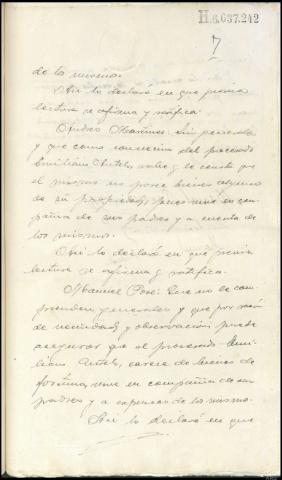 H.6.637.242
7
de los mismos.
Asi lo declaró en que previa
lectura se afirma y ratifica.
Isidro Sin generales
y que como convecino del procesado
Emiliano sabe y le consta que
el mismo no posee bienes algunos
de su propiedad, pues vive en com-
pañia de sus padres y a cuenta de
los mismos.
Asi lo declaró en que previa
lectura se afirma y ratifica.
Manuel Que no le com-
prenden generales y que por razón
de vecindad y observación puede
asegurar que el procesado Emi-
liano carece de bienes de
fortuna, vive en compañia de sus
padres y a expensas de los mismos.
Asi lo declaró en que